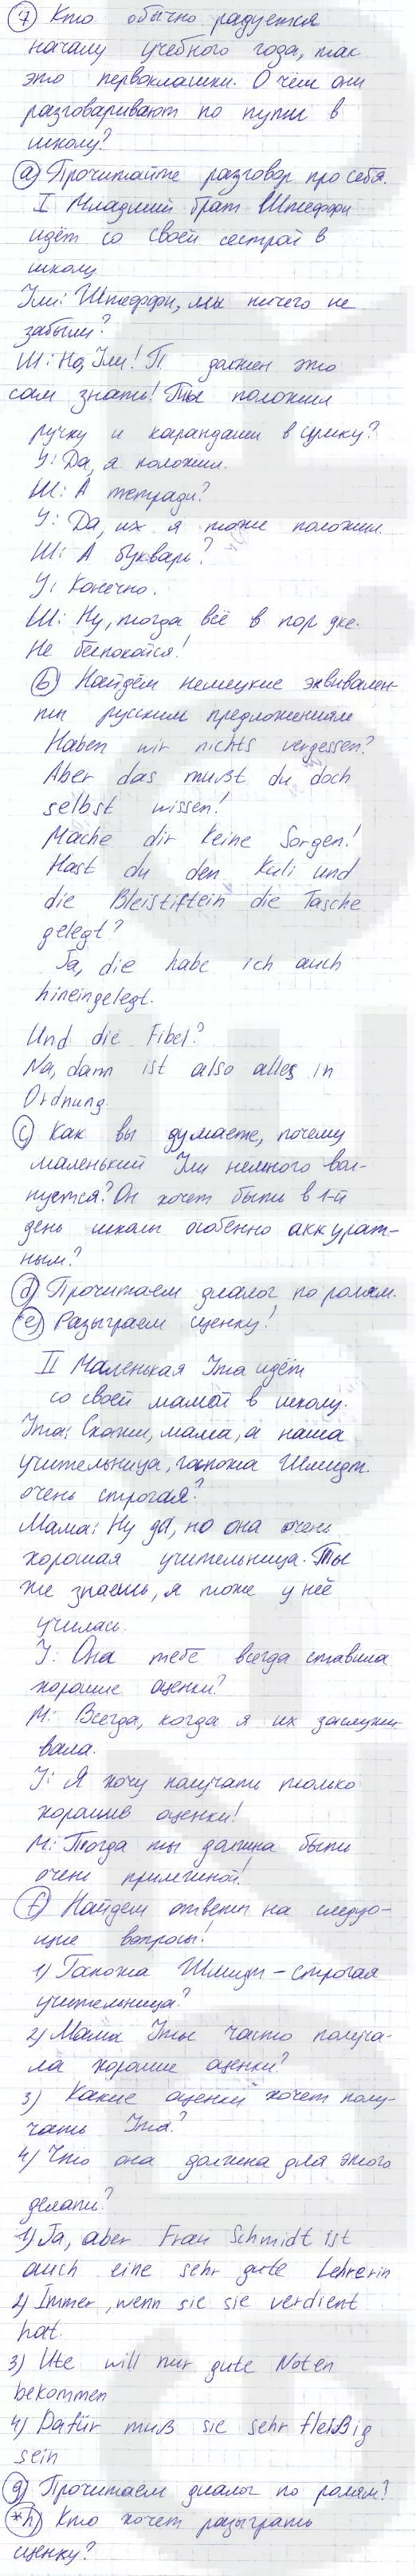 7) Кто обычно радуется
началу учебного года, так
это первоклашки. О чём они
разговаривают по пути в
школу?
a) Прочитайте разговор про себя.
I Младший брат Штеффи
идёт со своей сестрой в
школу
Ули: Штеффи, мы ничего не
забыли?
Ш: Но, Ули! Т должен это
сам знать! Ты положил
ручку и карандаши в сумку?
У: Да, я положил.
Ш: А тетради?
У: Да, их я тоже положил.
Ш: А букварь?
У: Конечно.
Ш: Ну, тогда всё в пор дке.
Не беспокойся!
b) Найдём немецкие эквивален-
ты русским предложениям
Haben wir nichts vergessen?
Aber das mußt du doch
selbst wissen!
Mache dir keine Sorgen!
Hast du den Kuli und
die Bleistiftein die Tasche
gelegt?
Ja, die habe ich auch
hineingelegt.
Und die Fibel?
Na, dann ist also alles in
Ordnung.
c) Как вы думаете, почему
маленький Ули немного вол-
нуется? Он хочет быть в 1-й
день школы особенно аккурат-
ным?
d) Прочитаем диалог по ролям.
*e) Разыграем сценку!
II Маленькая Ута идёт
со своей мамой в школу.
Ута: Скажи, мама, а наша
учительница, госпожа Шмидт.
очень строгая?
Мама: Ну да, но она очень
хорошая учительница. Ты
же знаешь, я тоже у неё
училась.
У: Она тебе всегда ставила
хорошие оценки?
М: Всегда, когда я их заслужи-
вала.
У: Я хочу получать только
хорошие оценки!
М: Тогда ты должна быть
очень прилежной!
f) Найдем ответы на следую-
щие вопросы!
1) Госпожа Шмидт - строгая
учительница?
2) Мама Уты часто получа-
ла хорошие оценки?
3) Какие оценки хочет полу-
чать Ута?
4) Что она должна для этого
делать?
1) Ja, aber Frau Schmidt ist
auch eine sehr gute Lehrerin
2) Immer, wenn sie sie verdient
hat.
3) Ute will nur gute Noten
bekommen
4) Dafür muß sie sehr fleißig
sein
g) Прочитаем диалог по ролям!
*h) Кто хочет разыграть
сценку?